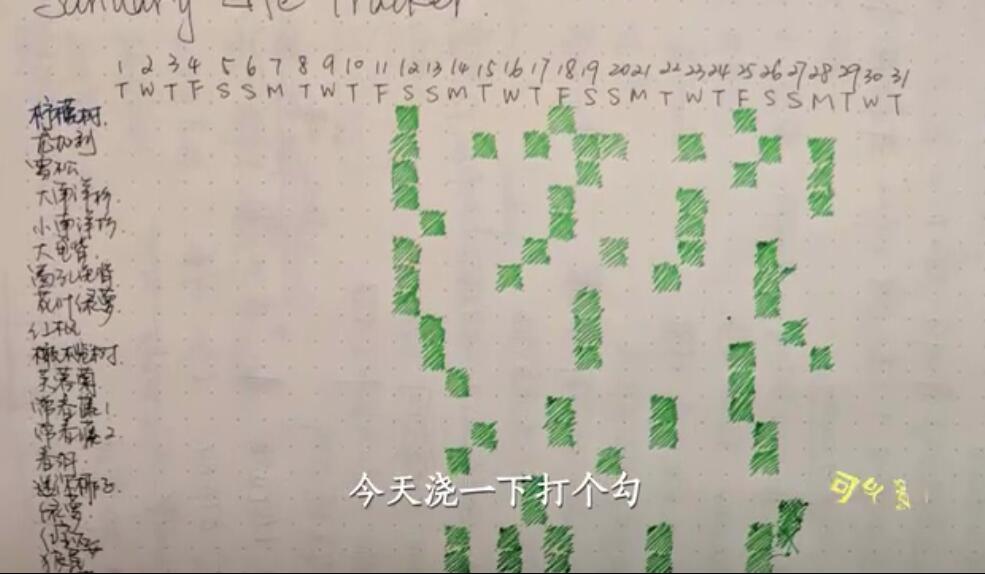 January Life Tracker
1 2 3 4 5 6 7 8 9 10 11 12 13 14 15 16 17 18 19 20 21 22 23 24 25 26 27 28 29 30 31
T W T F S S M T W T F S S M T W T F S S M T W T F S S M T W T
柠檬树.
尤加利
雪松
大南洋杉
小南洋杉
大龟背
面孔龟背
花叶绿萝
红枫
橄榄树.
芙蓉菊
常春藤1
常春藤2
春羽
绿萝
狼尾
今天浇一下打个勾